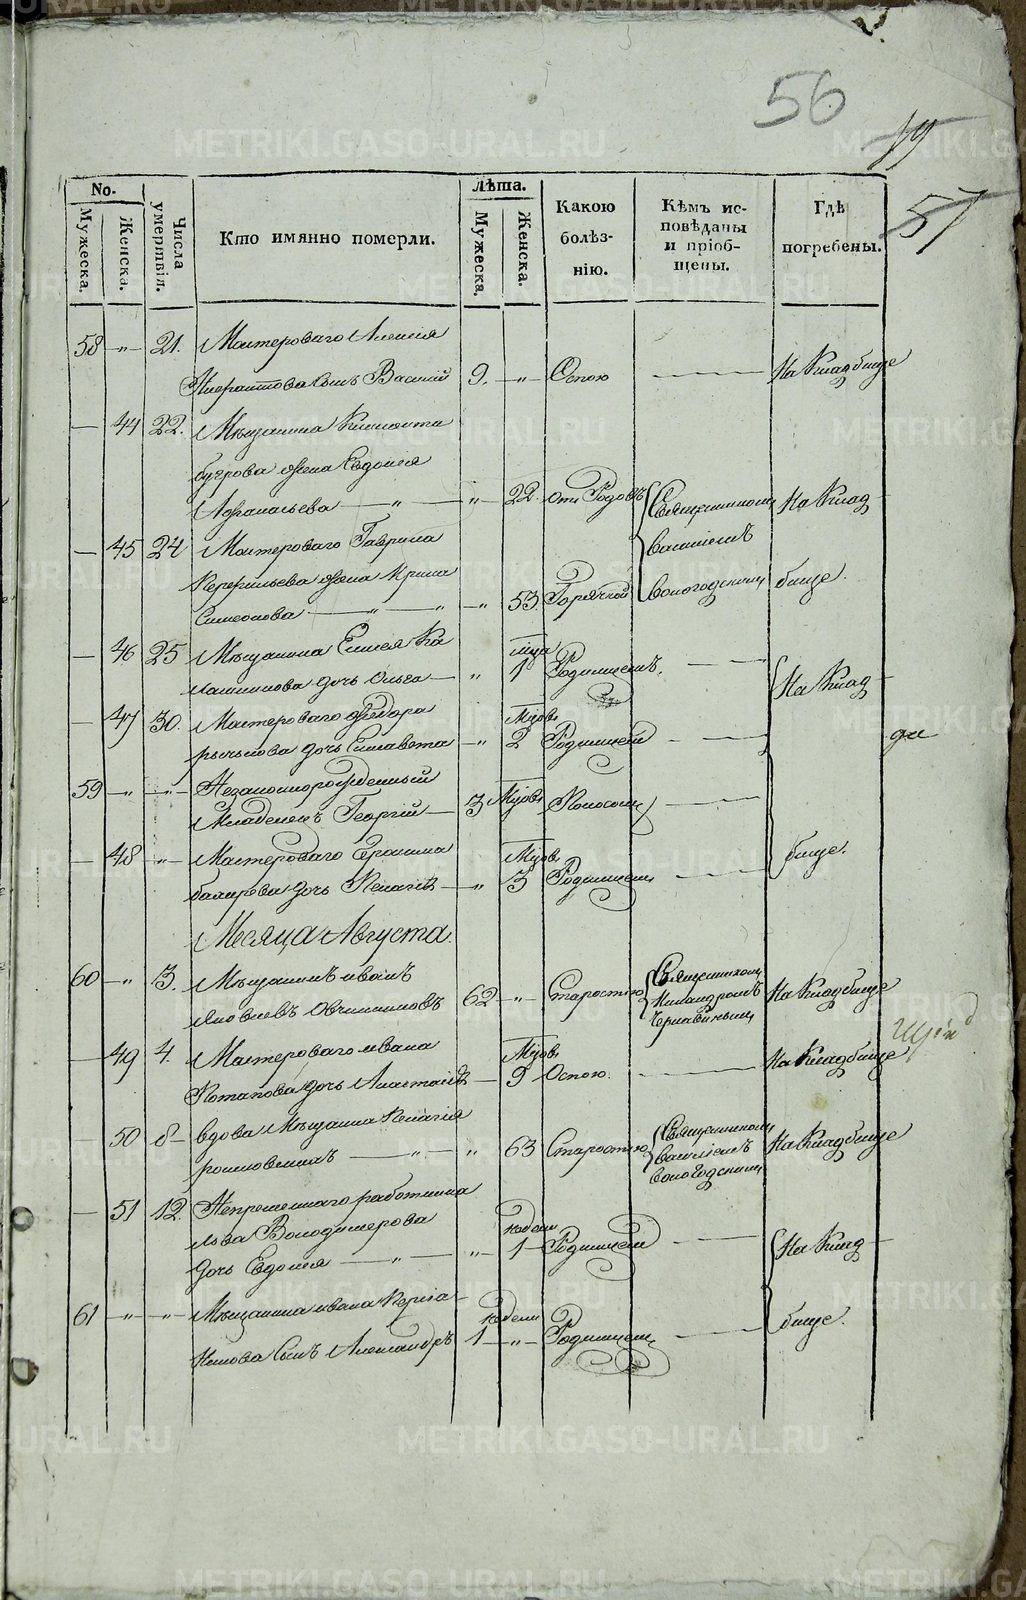 56
19
57
No.
Мужеска.
Женска.
Числа умертвія.
Кто имянно померли.
Лѣта.
Мужеска.
Женска.
Какою болѣзнію.
Кѣмъ исповѣданы и пріобщены.
Гдѣ погребены.
58 — „ — 21. Мастероваго Алексѣя
сынъ Василій 9. — „ — Оспою — На Кладбище
— 44 22. Мѣщанина
бугрова жена Евдокія
Афанасьева — „ — „ — 22. отъ Родовъ Священникомъ На Клад-
— 45 24 Мастероваго Гаврила
Василіемъ
жена Ирина
Симеонова — „ — „ — „ — 53. Горячкой Вологодскимъ бище.
— 46 25 Мѣщанина Елисея Ка
лашникова дочь Ольга — „ 1 мца Родимцемъ. — На Клад-
— 47 30. Мастероваго Федора
рычкова дочь Елисавета — „ 2 Мцовъ Родимцемъ —
59 — „ — „ — Незаконнорожденный
Младенецъ Георгій — 3 Мцовъ Поносомъ —
— 48 — „ — Мастероваго Герасима
дочь Пелагія — „ 3 Мцовъ Родимцемъ — бище.
Месяца Августа.
60 — „ 3. Мѣщанинъ иванъ
Яковлевъ Овчинниковъ 62 — „ — Старостію Священникомъ Александромъ Чернавинымъ На Кладбище
— 49 4. Мастероваго ивана
Потапова дочь Анастасія — 9 Мцовъ Оспою. — На Кладбище
— 50 8 — вдова Мѣщанка Пелагія
— „ — „ 63 Старостію Священникомъ Василіемъ Вологодскимъ На Кладбище
— 51 12. Непременнаго работника
льва Володимерова
дочь Евдокія — „ — „ — 1 недели Родимцемъ — На Клад-
61 — „ — „ — Мѣщанина ивана
сынъ Александръ 1 недели — „ — Родимцемъ — бище.
METRIKI.GASO-URAL.RU